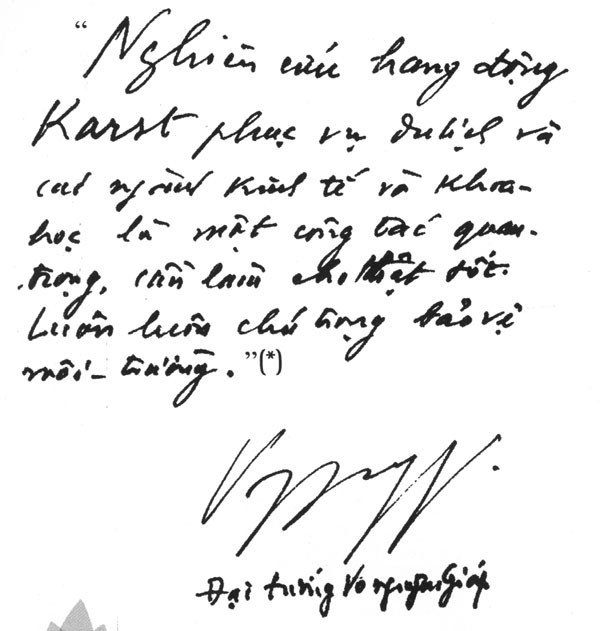 “Nghiên cứu hang động
Karst phục vụ du lịch và
các ngành kinh tế và khoa-
học là một công tác quan-
trọng, cần làm cho thật tốt.
Luôn luôn chú trọng bảo vệ
môi-trường.”(*)
Đại tướng Võ Nguyên Giáp